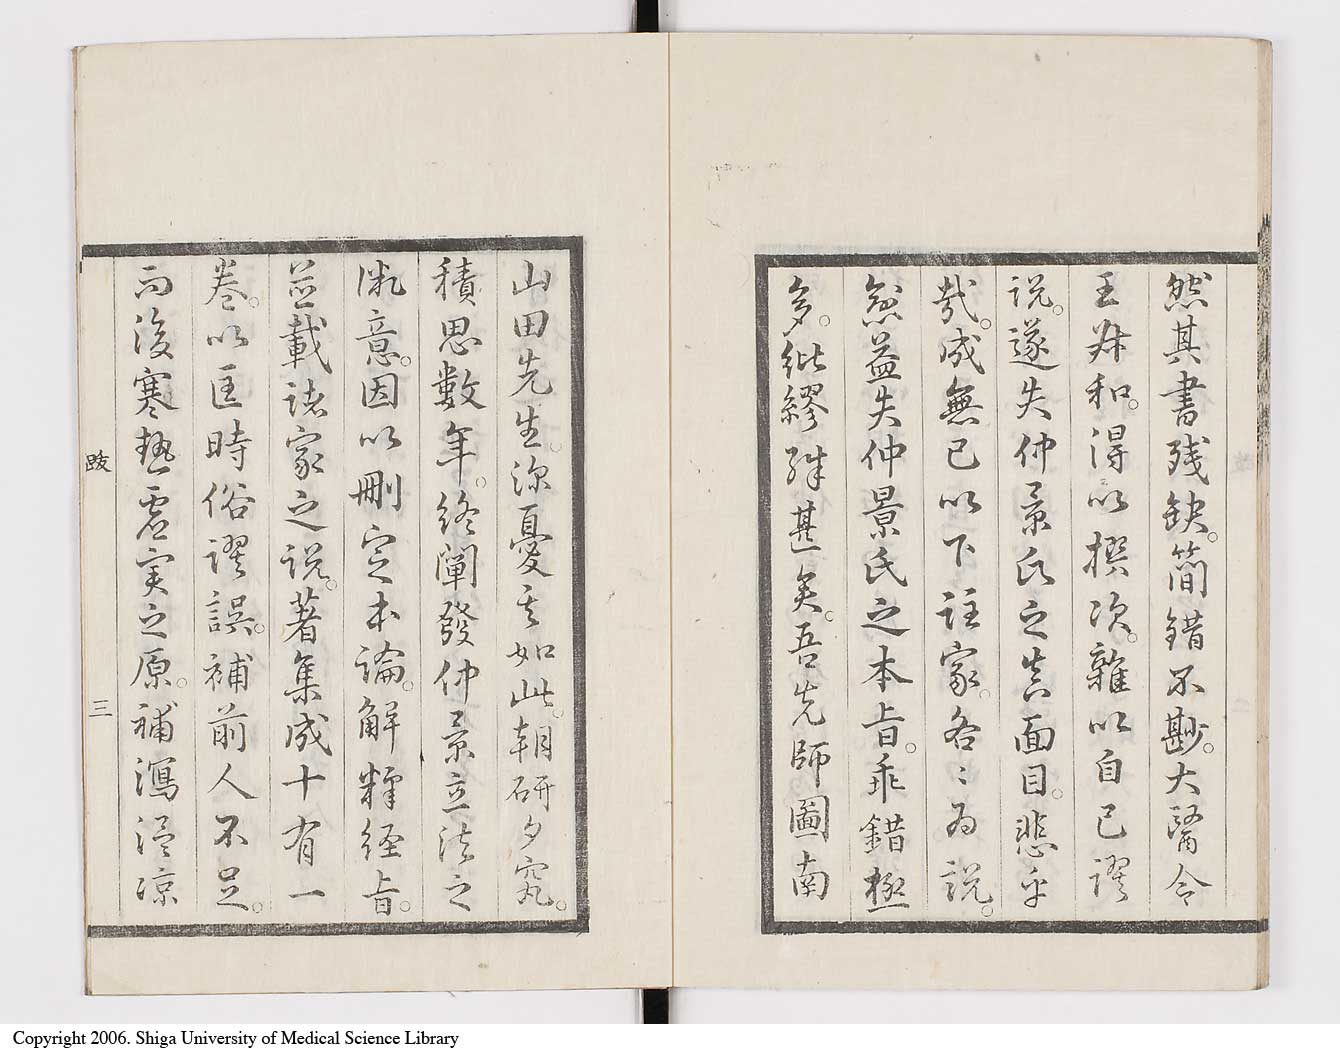 然其書残缺。簡錯不尠。大醫令
王叔和。得以撰次。雜以自己謬
説。遂失仲景氏之真面目。悲乎
哉。成無已以下註家。各〻為説。
愈益失仲景氏之本旨。乖錯極
多。紕繆殊甚矣。吾先師圖南
山田先生。深憂其如此。朝研夕究。
積思數年。終闡發仲景立法之
微意。因以刪定本論。解釋経旨。
並載諸家之説。著集成十有一
巻。以匡時俗謬誤。補前人不足。
而後寒熱虚実之原。補瀉温凉
跋
三
Copyright 2006. Shiga University of Medical Science Library